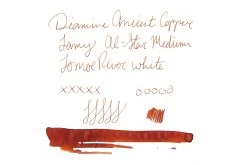 Diamine Ancient Copper
Lamy Al-Star Medium
Tomoe River White
xxxxx ooooo